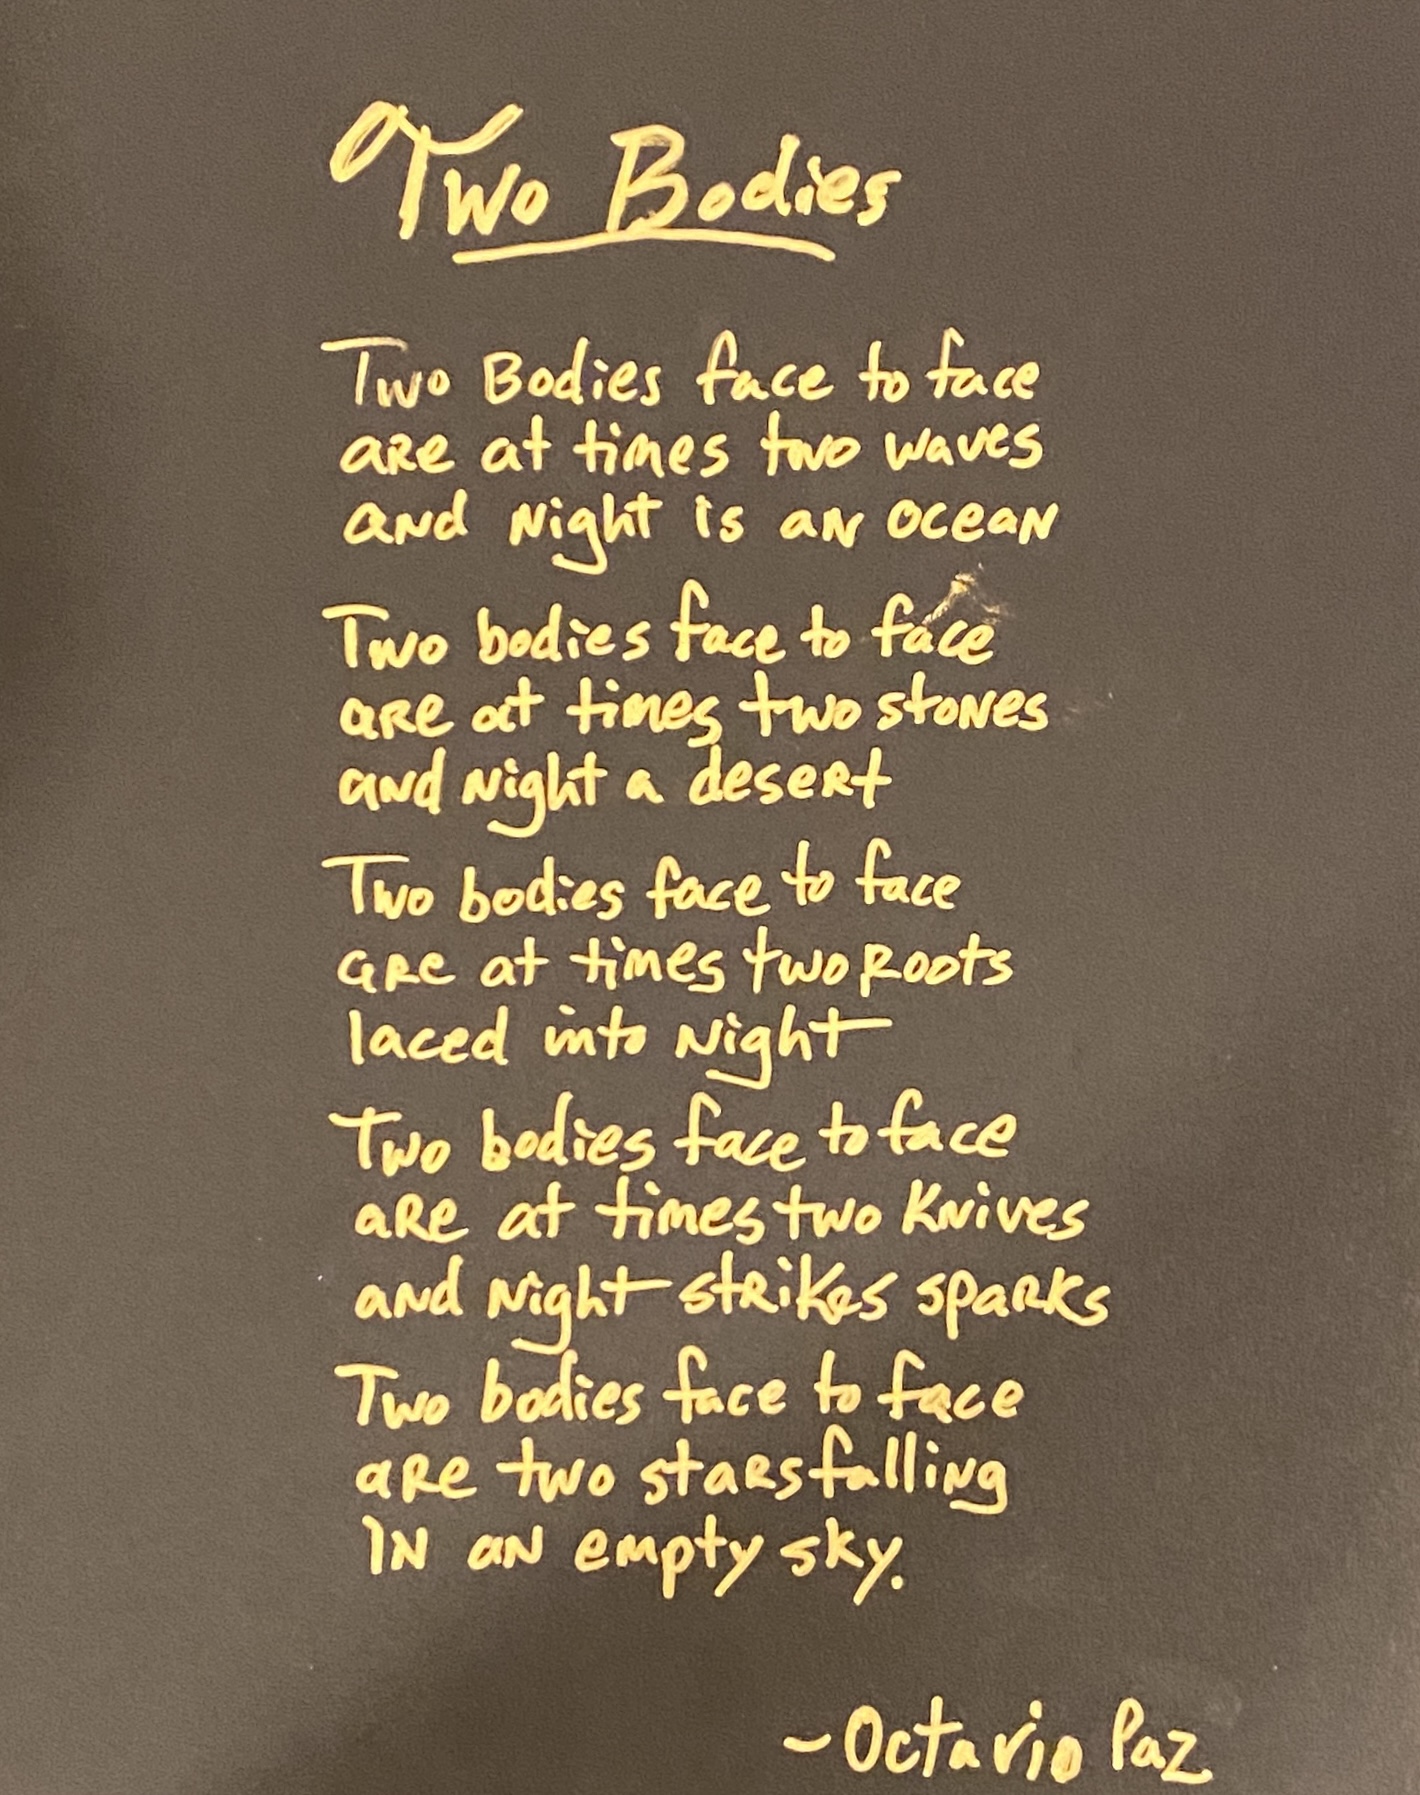 Two Bodies
Two Bodies face to face
are at times two waves
and Night is an ocean
Two bodies face to face
are at times two stones
and Night a desert
Two bodies face to face
are at times two Roots
laced into Night
Two bodies face to face
are at times two Knives
and Night strikes sparks
Two bodies face to face
are two stars falling
IN an empty sky.
~Octavio Paz